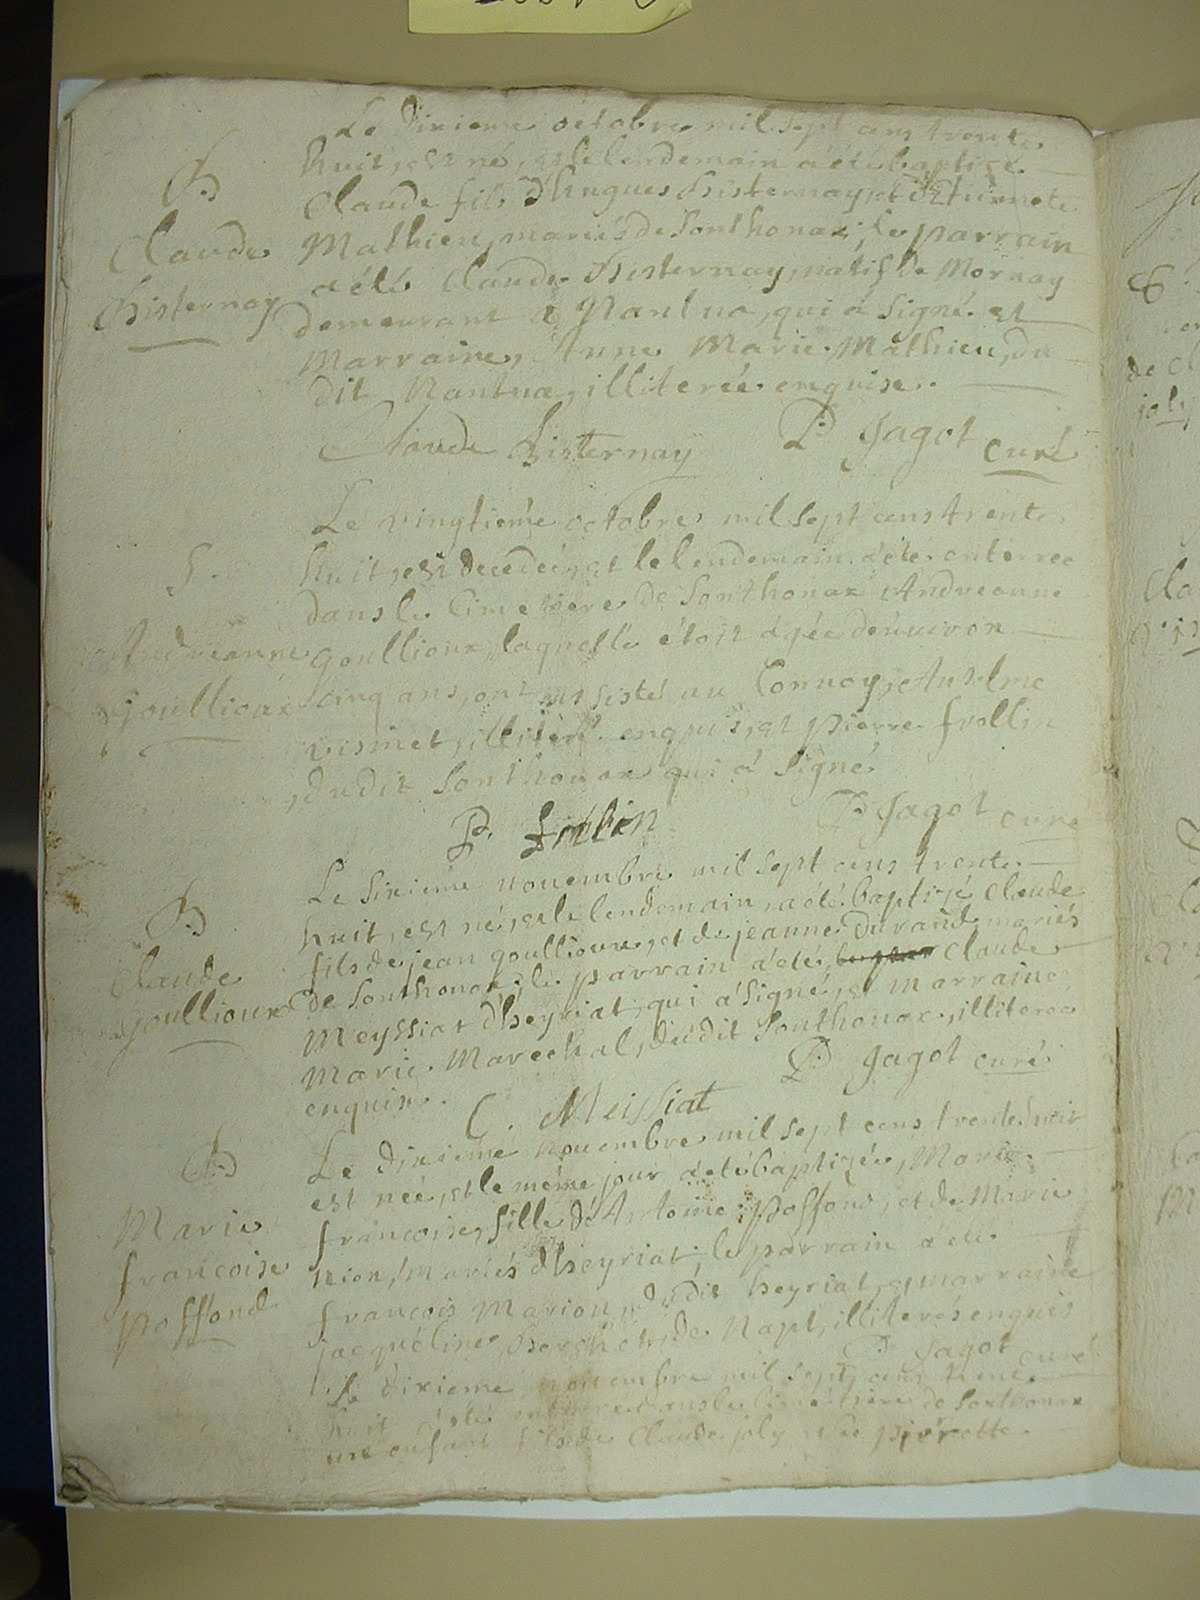 Le dixieme octobre mil sept cens trente
B
huit, est né, et le lendemain a été baptizé
Claude fils d'hugues Bisternay, et d'Etiennete
Claude
Mathieu, mariés de Sonthonax; le parrain
Bisternay
a été Claude Bisternay, natif de Mornay
demeurant a Nantua, qui a signé et
Marraine, Anne Marie Mathieu, du
dit Nantua, illiterée enquise.
Claude Bisternay P. Jagot curé
Le vingtieme octobre mil sept cens trente
S.
huit, est decedée, et le lendemain a été enterree
dans le Cimetiere de Sonthonax Andreanne
Andreanne
goullioux, laquelle étoit agée d'environ
goullioux
cinq ans, ont assisté au Convoy, Anselme
illiteré enquis, et pierre frollin
dudit Sonthonax qui a signé
P. P. Jagot curé
Le sixieme novembre mil sept cens trente
B
huit, est né, et le lendemain, a été baptizé Claude
fils de jean goullioux, et de jeanne Durand, mariés
Claude
de Sonthonax; le parrain a été, Claude
goullioux
Meyssiat d'heyriat, qui a signé, et marraine
Marie Marechal, dudit Sonthonax, illiteree
enquise. P. Jagot curé
C. Meissiat
Le dixieme novembre mil sept cens trente huit
B
est née, et le même jour a été baptizée, Marie
Marie
francoise, fille d'Antoine poffond, et de Marie
francoise
nion, mariés d'heyriat; le parrain a été
poffond
francois Marion, dudit heyriat, et marraine
jacqueline, de Napt, illiterés enquis
P. Jagot curé
Le dixieme novembre mil sept cens trente
huit a été enterré dans le cimetiere de Sonthonax
un enfant fils de Claude joly et de pierrette